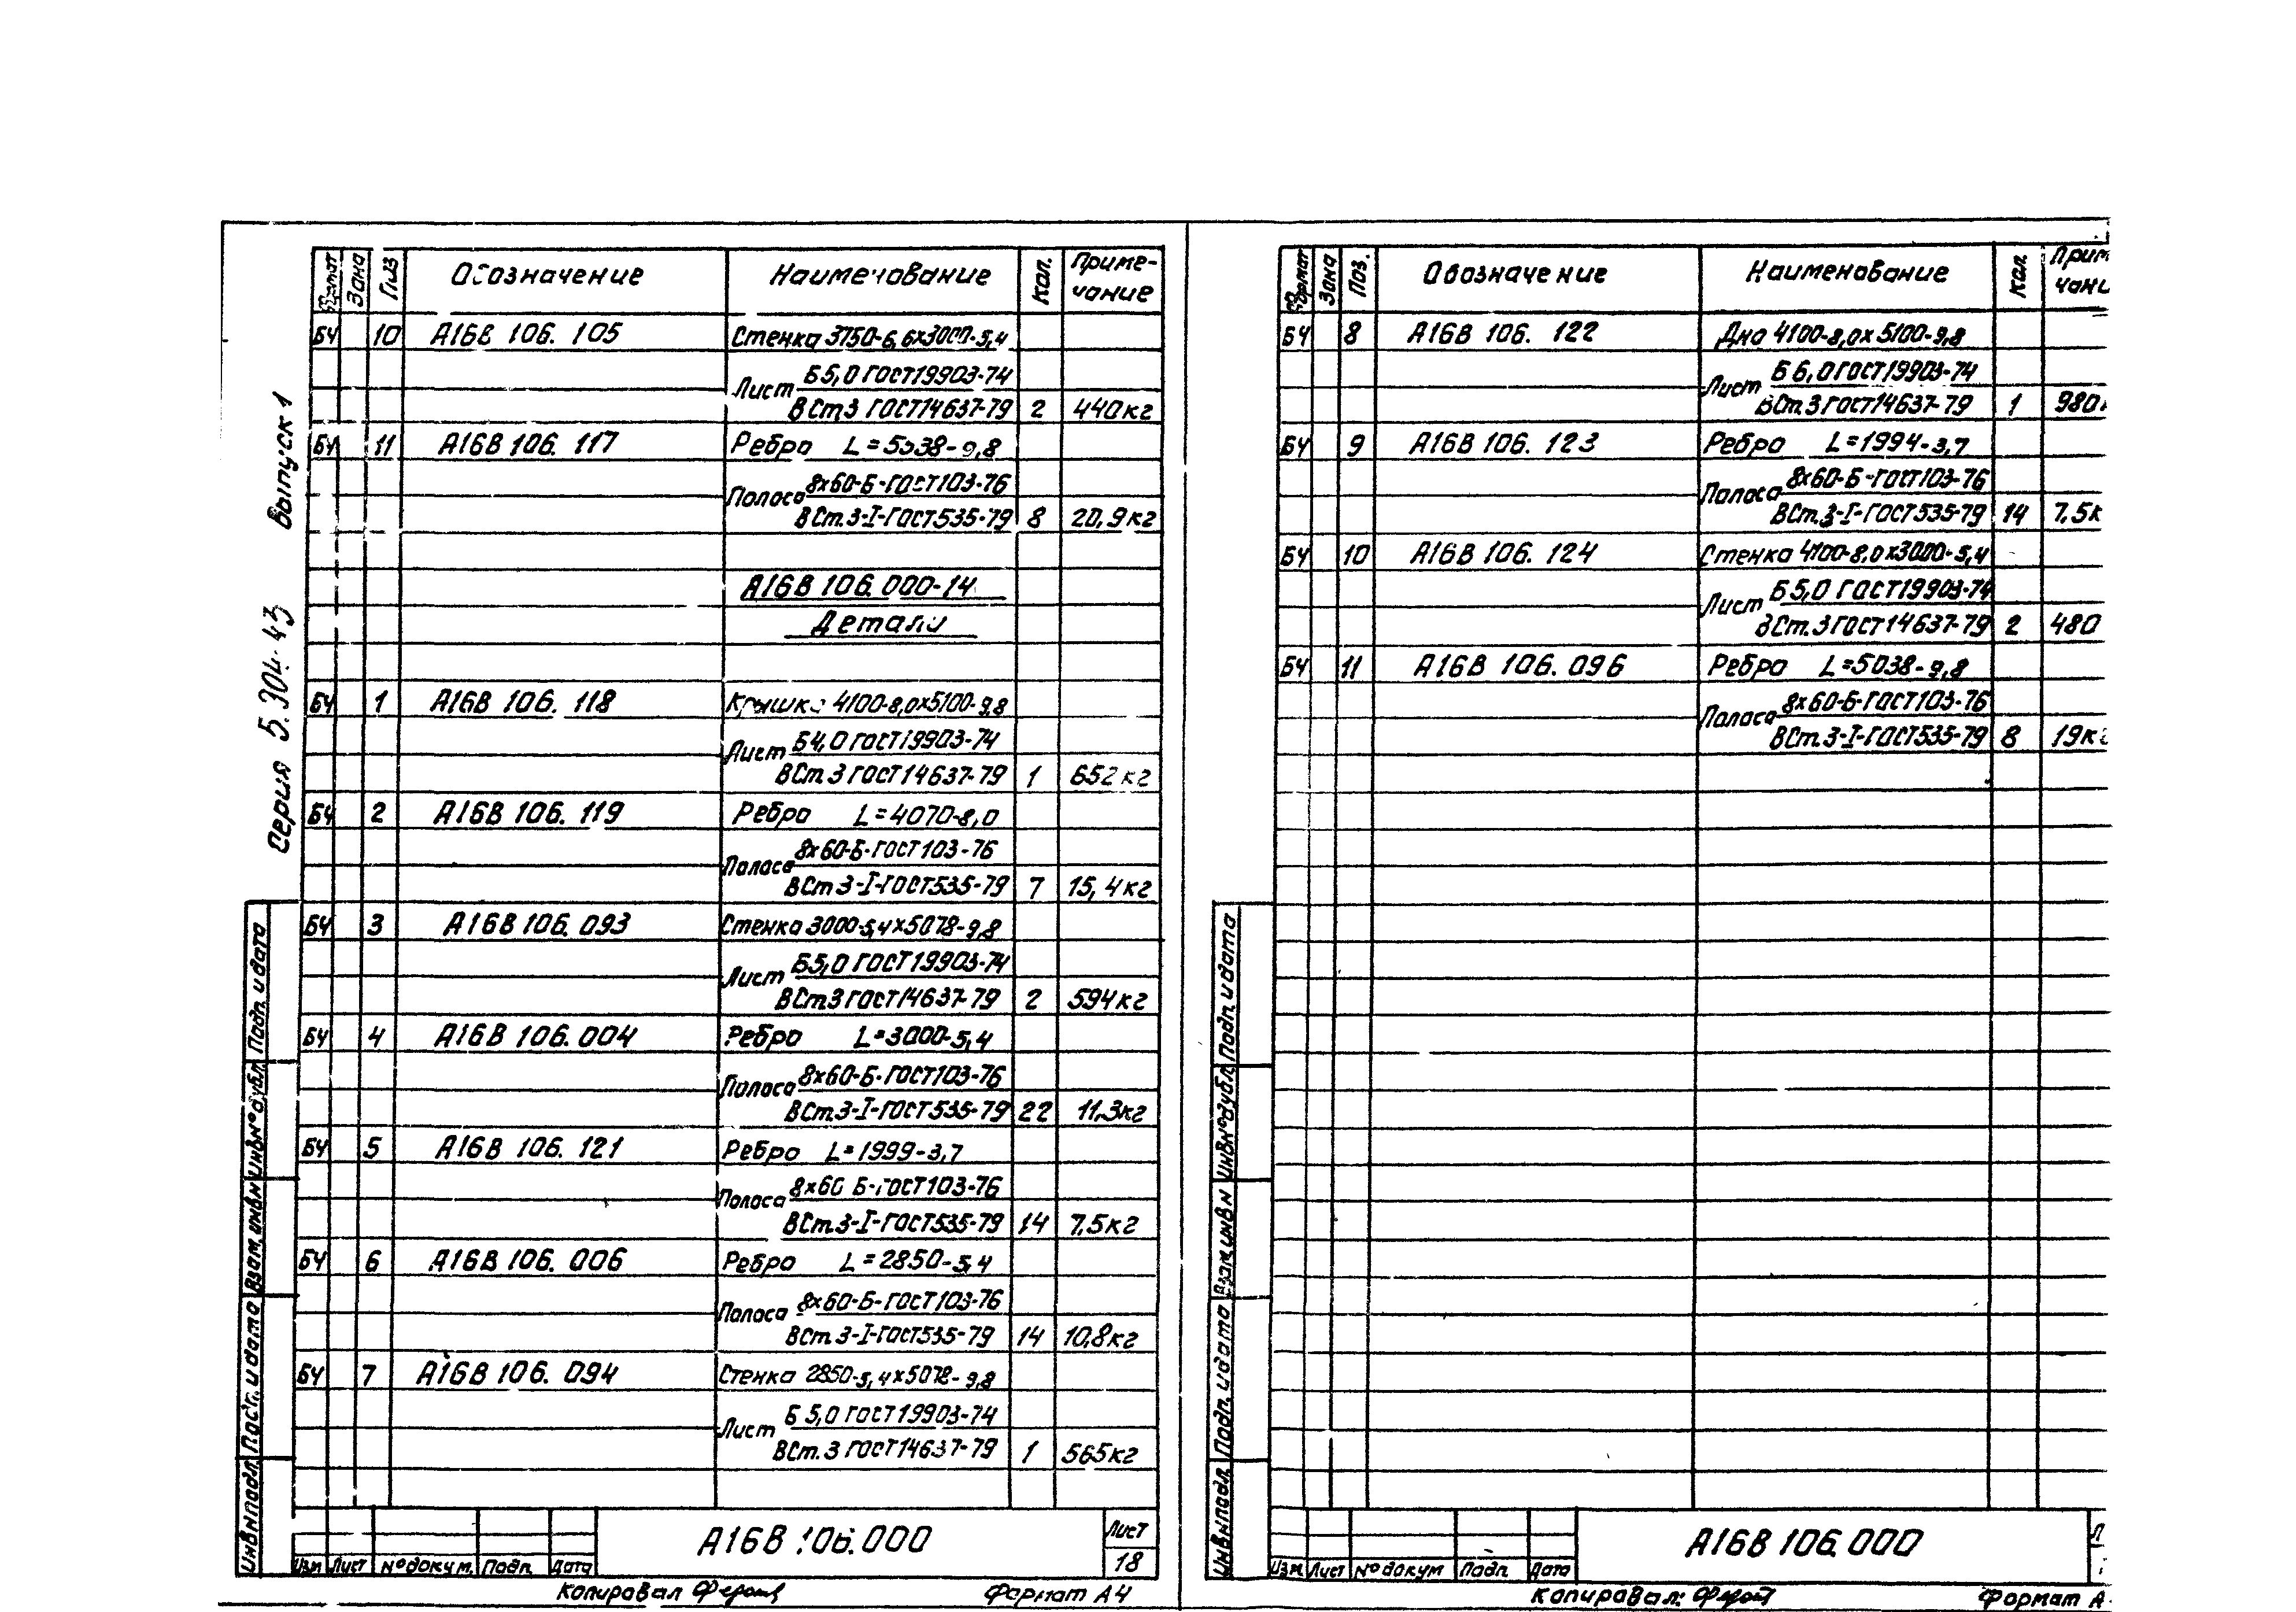 серия 5.304-43 Выпуск 1
Формат Зона Поз Обозначение Наименование Кол. Приме-
чание
БЧ 10 А16В 106. 105 Стенка 3750-6,6х3000-5,4
Лист Б5,0 ГОСТ19903-74
ВСт3 ГОСТ14637-79 2 440кг
БЧ 11 А16В 106. 117 Ребро L=5538-9,8
Полоса 8х60-Б-ГОСТ103-76
ВСт.3-I-ГОСТ535-79 8 20,9кг
А16В 106.000-14
Детали
БЧ 1 А16В 106. 118 Крышка 4100-8,0х5100-9,8
Лист Б4,0 ГОСТ19903-74
ВСт.3 ГОСТ14637-79 1 652кг
БЧ 2 А16В 106. 119 Ребро L=4070-8,0
Полоса 8х60-Б-ГОСТ103-76
ВСт3-I-ГОСТ535-79 7 15,4кг
БЧ 3 А16В 106. 093 Стенка 3000-5,4х5078-9,8
Лист Б5,0 ГОСТ19903-74
ВСт3 ГОСТ14637-79 2 594кг
БЧ 4 А16В 106.004 Ребро L=3000-5,4
Полоса 8х60-Б-ГОСТ103-76
ВСт.3-I-ГОСТ535-79 22 11,3кг
БЧ 5 А16В 106. 121 Ребро L=1999-3,7
Полоса 8х60 Б-ГОСТ103-76
ВСт.3-I-ГОСТ535-79 14 7,5кг
БЧ 6 А16В 106. 006 Ребро L=2850-5,4
Полоса 8х60-Б-ГОСТ103-76
ВСт.3-I-ГОСТ535-79 14 10,8кг
БЧ 7 А16В 106. 094 Стенка 2850-5,4х5078-9,8
Лист Б 5,0 ГОСТ19903-74
ВСт.3 ГОСТ14637-79 1 565кг
Инв№подл. Подп. и дата Взам.инв№ Инв№дубл. Подп. и дата
А16В 106.000 Лист
18
Изм Лист №докум. Подп. Дата
Копировал Формат А4
Формат Зона Поз. Обозначение Наименование Кол.
БЧ 8 А16В 106. 122 Дно 4100-8,0х5100-9,8
Лист Б 6,0 ГОСТ19903-74
ВСт.3 ГОСТ14637-79 1 980
БЧ 9 А16В 106. 123 Ребро L=1994-3,7
Полоса 8х60-Б-ГОСТ103-76
ВСт.3-I-ГОСТ535-79 14 7,5к
БЧ 10 А16В 106. 124 Стенка 4100-8,0х3000-5,4
Лист Б5,0 ГОСТ19903-74
ВСт.3 ГОСТ14637-79 2 480
БЧ 11 А16В 106. 096 Ребро L=5038-9,8
Полоса 8х60-Б-ГОСТ103-76
ВСт.3-I-ГОСТ535-79 8 19кг
Инв№подл. Подп. и дата Взам инв№ Инв№дубл. Подп. и дата
А16В 106.000
Изм Лист №докум Подп Дата
Копировал: Формат А